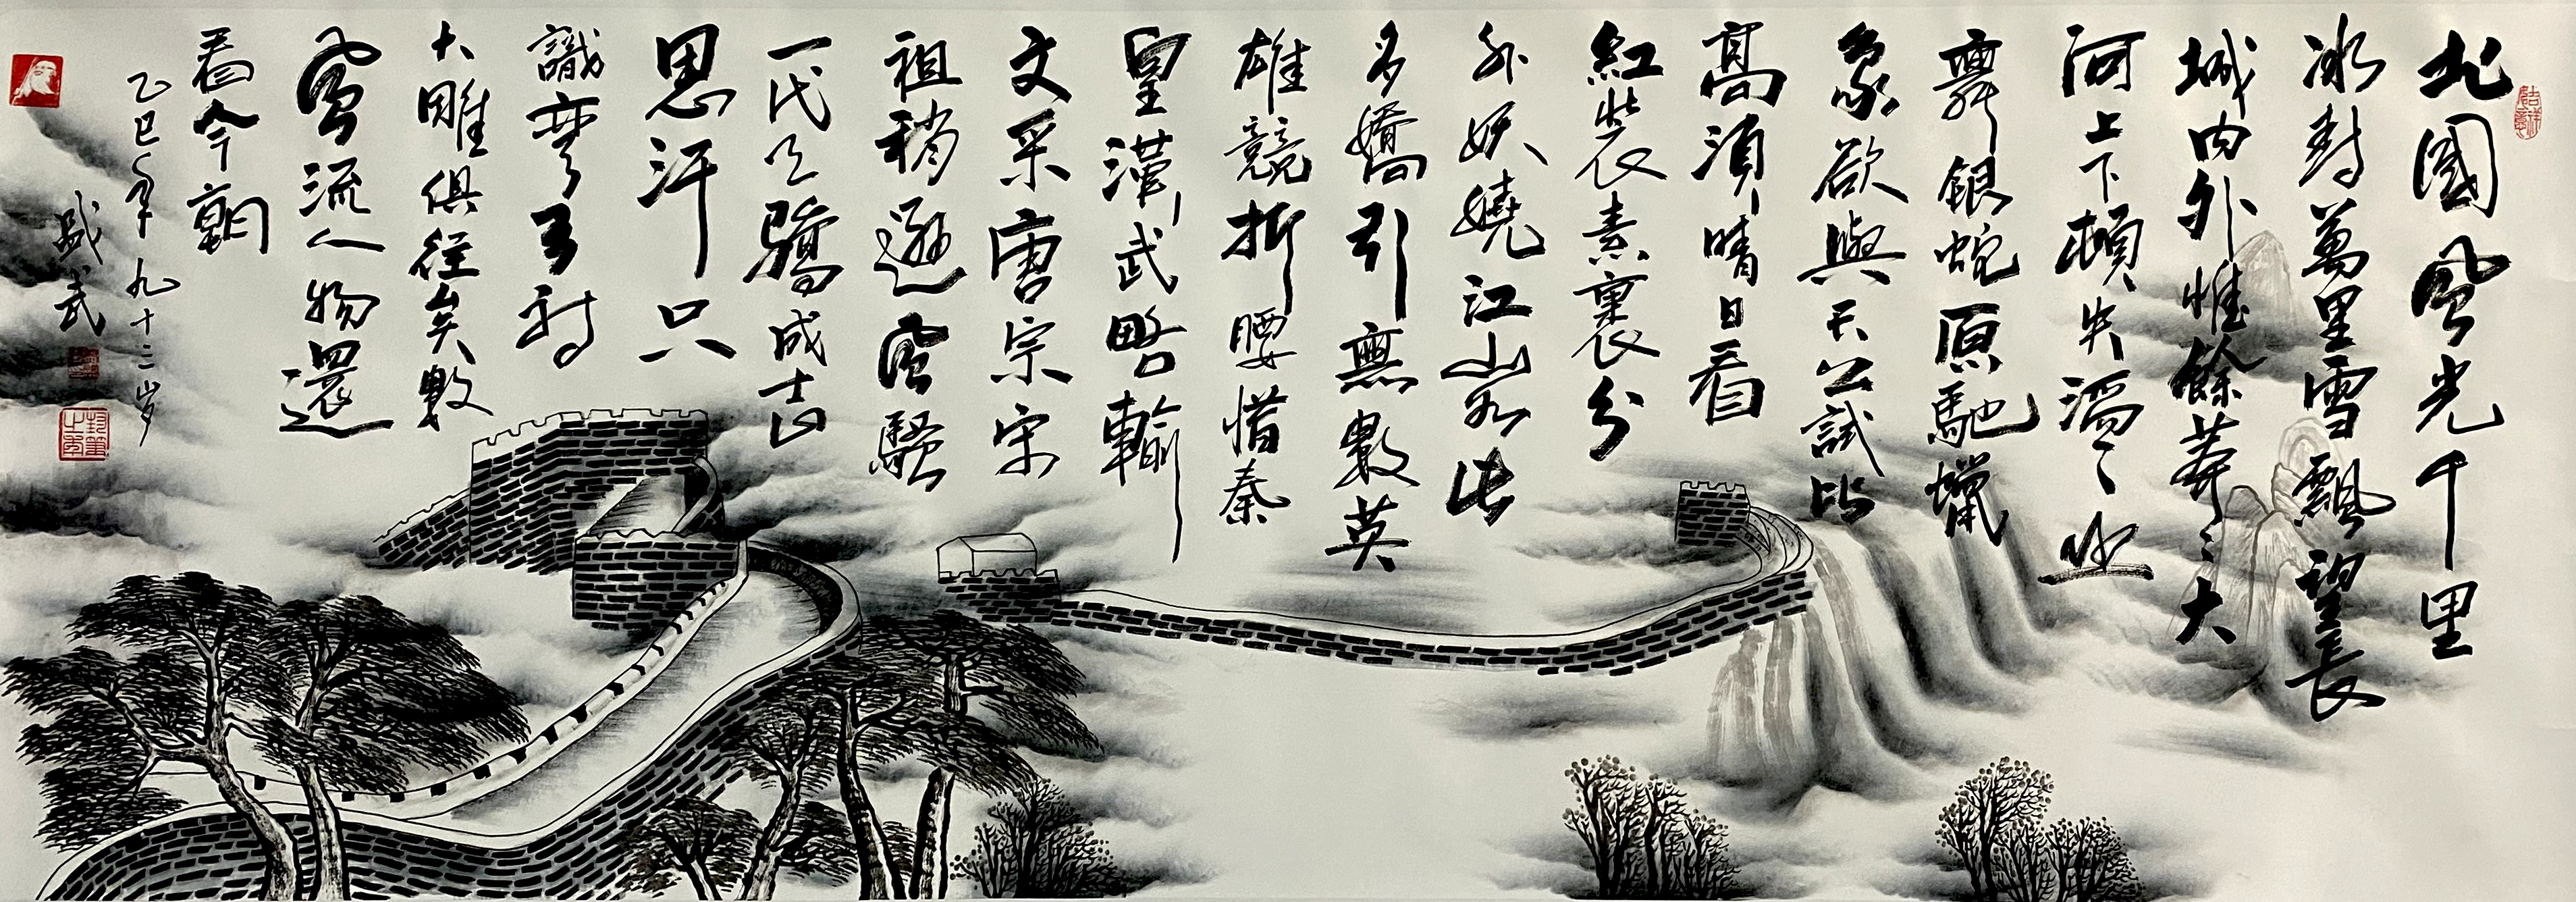 北國風光千里
冰封萬里雪飄望長
城内外惟餘莽〻大
河上下頓失滔〻山
舞銀蛇原馳蠟
象欲與天公試比
高須晴日看
紅裝素裹分
外妖嬈江山如此
多嬌引無數英
雄競折腰惜秦
皇漢武略輸
文采唐宗宋
祖稍遜風騷
一代天驕成吉
思汗只
識彎弓射
大雕俱往矣數
風流人物還
看今朝
乙巳年九十二岁
盛武